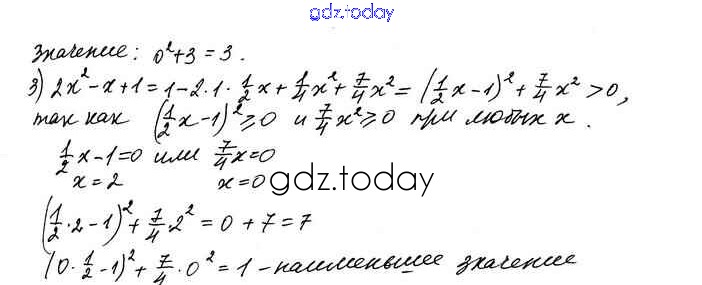 gdz.today
Значение: 0²+3=3.
3) 2x²-x+1=1-2·1·1/2x+1/4x²+7/4x²=(1/2x-1)²+7/4x²>0,
так как (1/2x-1)²⩾0 и 7/4x²⩾0 при любых x.
1/2x-1=0 или 7/4x=0
x=2 x=0
gdz.today
(1/2·2-1)²+7/4·2²=0+7=7
(0·1/2-1)²+7/4·0²=1-наименьшее значение